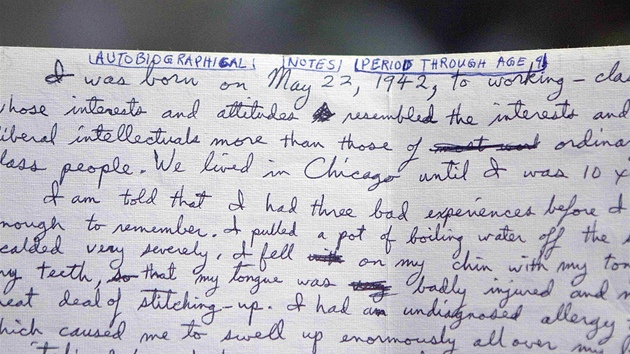 AUTOBIOGRAPHICAL NOTES PERIOD THROUGH AGE 9
I was born on May 22, 1942, to working-clas
whose interests and attitudes resembled the interests and
liberal intellectuals more than those of ordinar
lass people. We lived in Chicago until I was 10 y
I am told that I had three bad experiences before I
nough to remember. I pulled a pot of boiling water off the s
calded very severely. I fell on my chin with my ton
my teeth, so that my tongue was badly injured and
reat deal of stitching-up. I had an undiagnosed allergy
hich caused me to swell up enormously all over my